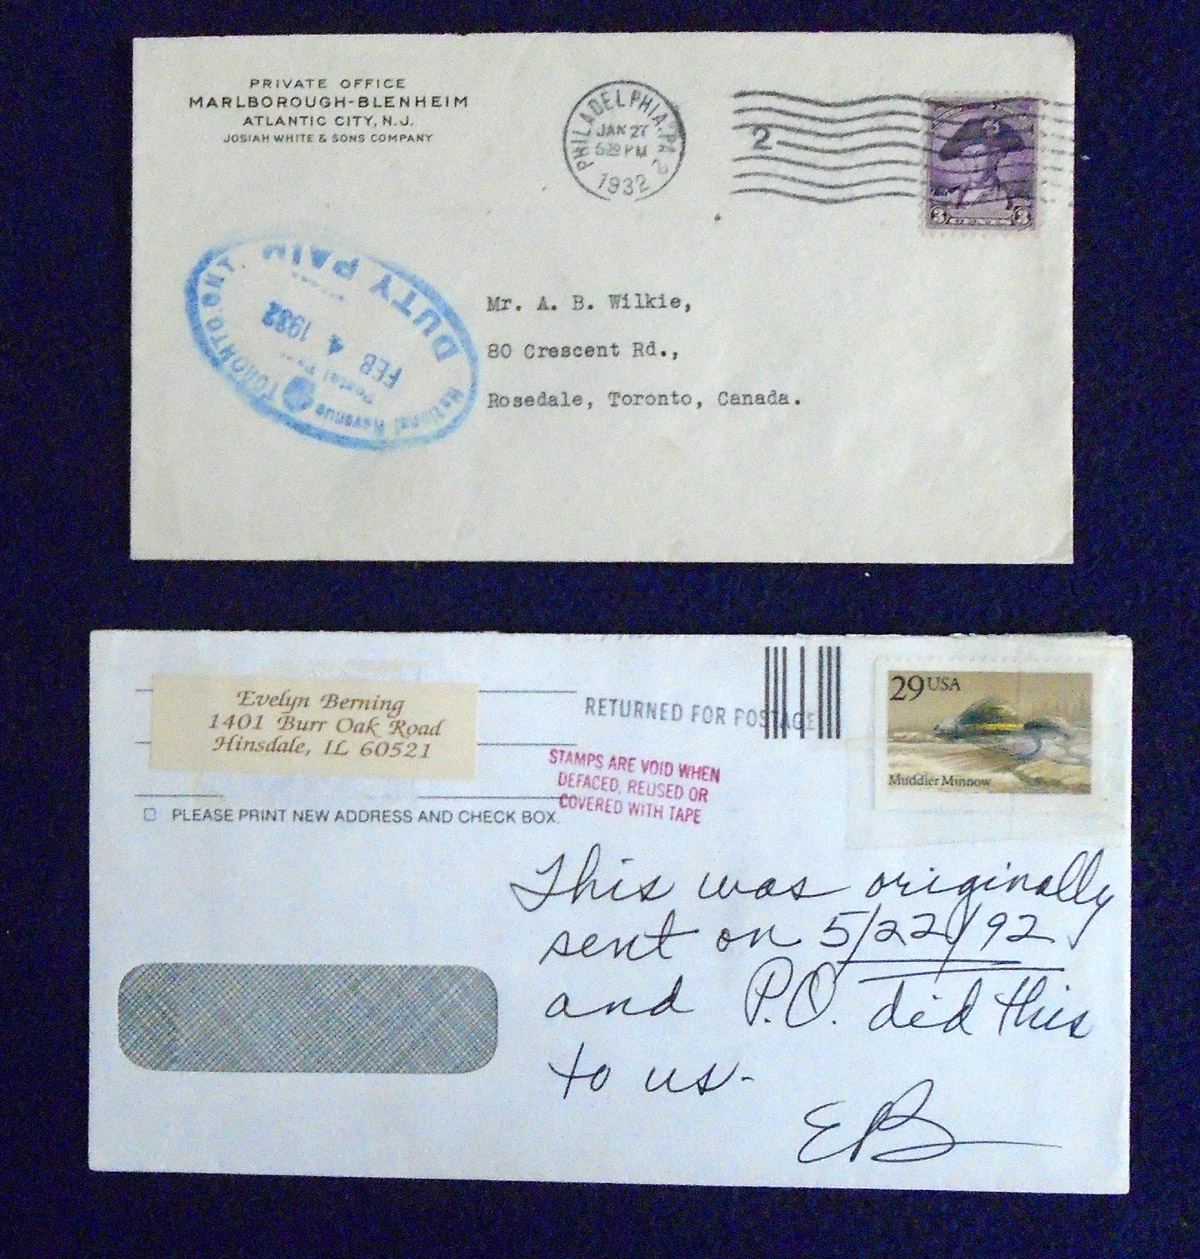 PRIVATE OFFICE
MARLBOROUGH-BLENHEIM
ATLANTIC CITY, N.J.
JOSIAH WHITE & SONS COMPANY
PHILADELPHIA, PA. 2
JAN 27
PM
1932
2
3 CENTS 3
DUTY PAID
FEB 4 1932
National Revenue TORONTO, ONT.
Mr. A. B. Wilkie,
80 Crescent Rd.,
Rosedale, Toronto, Canada.
Evelyn Berning
1401 Burr Oak Road
Hinsdale, IL 60521
PLEASE PRINT NEW ADDRESS AND CHECK BOX
RETURNED FOR POSTAGE
STAMPS ARE VOID WHEN
DEFACED, REUSED OR
COVERED WITH TAPE
29 USA
Muddler Minnow
This was originally
sent on 5/22/92
and P.O. did this
to us-
EB